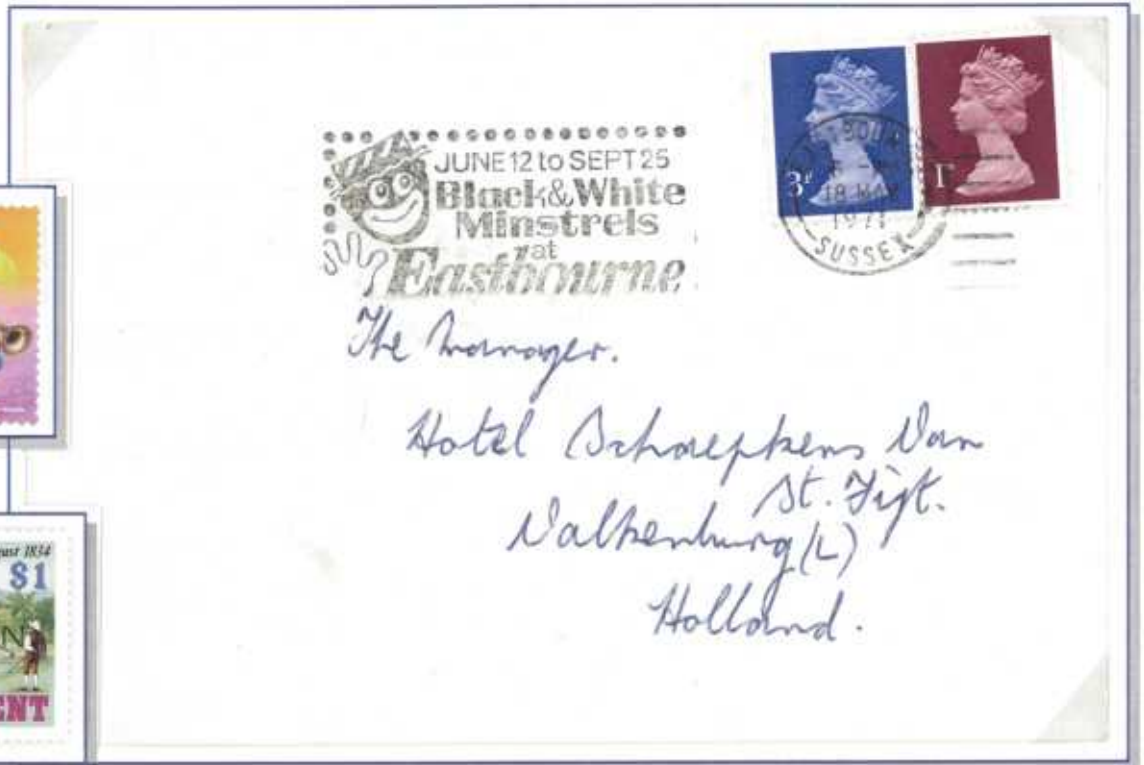 JUNE 12 to SEPT 25
Black & White
Minstrels
at
Eastbourne
3P
1P
18 MAY
1971
SUSSEX
The Manager.
Hotel Schaepkens Van
St. Fijt.
Valkenburg (L)
Holland.
ust 1834
$1
N
ENT